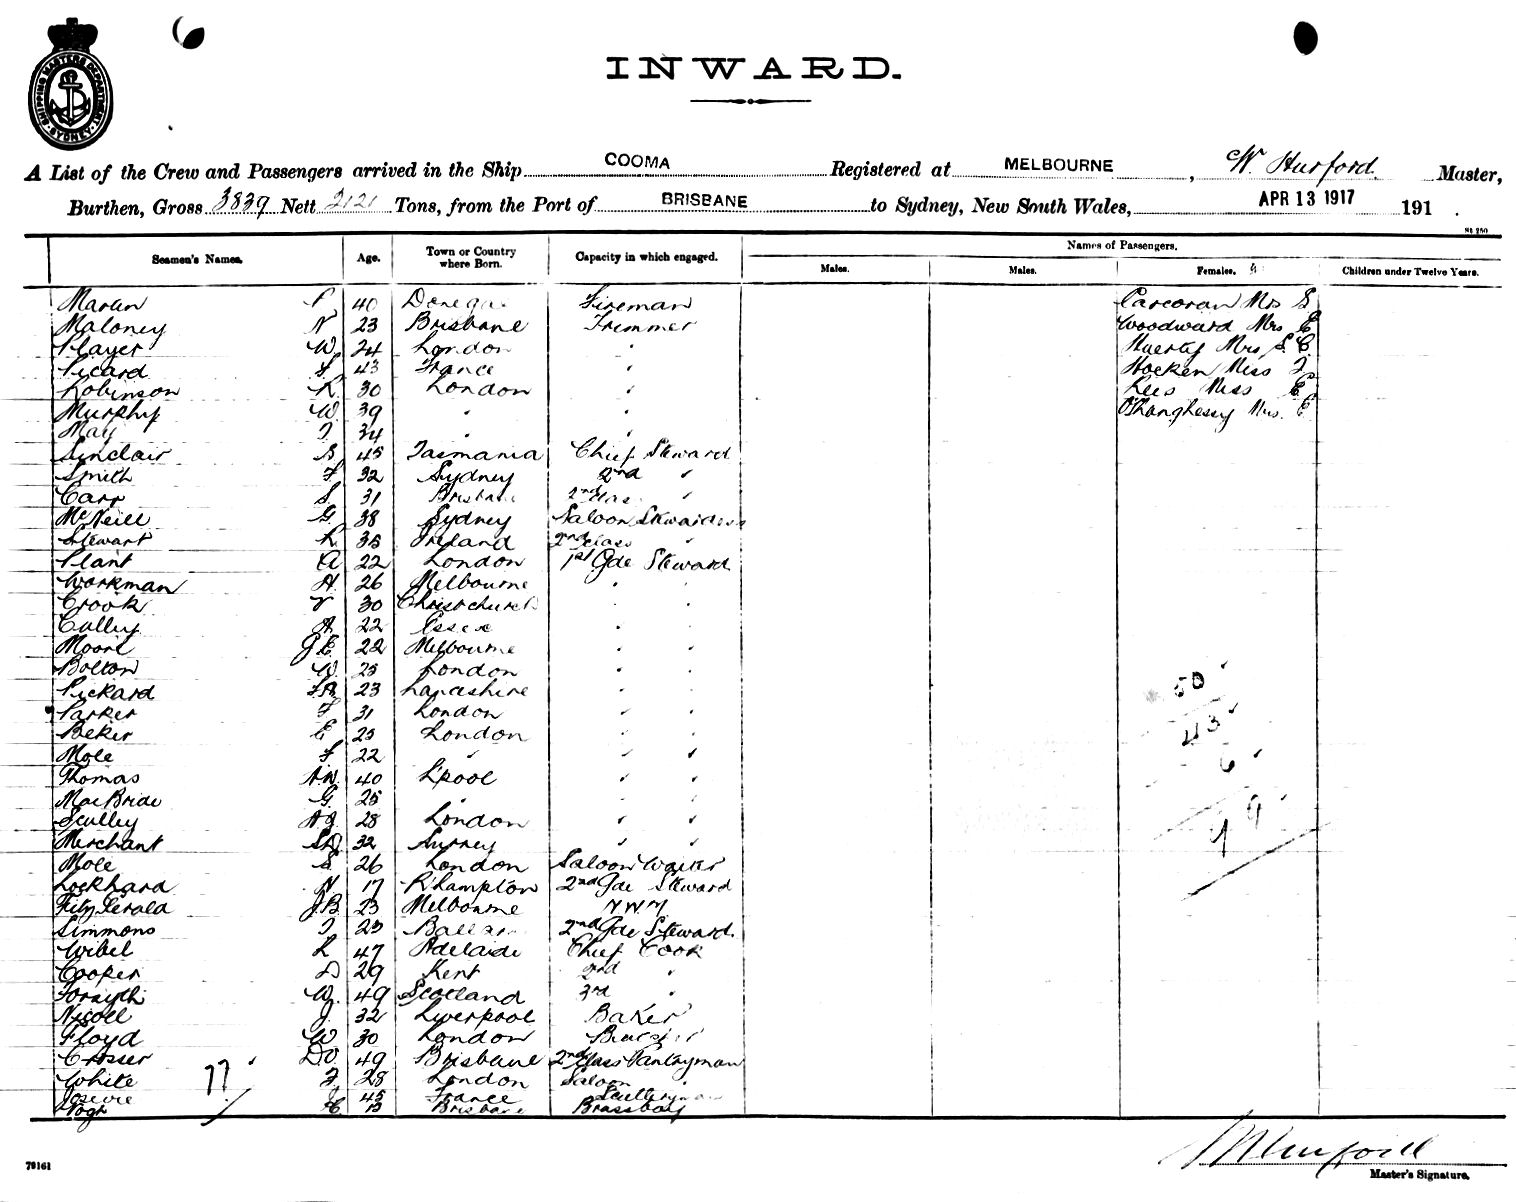 SHIPPING MASTERS DEPARTMENT SYDNEY
INWARD.
A List of the Crew and Passengers arrived in the Ship COOMA Registered at MELBOURNE, W. Hurford. Master,
Burthen, Gross 3839 Nett 2121 Tons, from the Port of BRISBANE to Sydney, New South Wales, APR 13 1917 191 .
Seamen's Names. Age. Town or Country where Born. Capacity in which engaged. Names of Passengers.
Males. Males. Females. Children under Twelve Years.
Martin 40 Fireman Corcoran Mrs
Maloney N 23 Brisbane Trimmer Woodward Mrs E
Player W 24 London " Mrs S. C.
Picard 43 France " Hocken Miss
Robinson R. 30 London " Rees Miss E
Murphy W 39 " " Mrs. E
May 34 " "
Sinclair 45 Tasmania Chief Steward
Smith F 32 Sydney 2nd "
Carr S. 31 Brisbane 2nd Class "
McNeill G. 38 Sydney Saloon Stewardess
Stewart R. Ireland 2nd Class "
Plant A 22 London 1st Gde Steward
Workman H. 26 Melbourne " "
Crook 30 Christchurch " "
Culley A 22 Essex " "
Moore J E 22 Melbourne " "
Bolton W. London " "
Pickard 23 Lancashire " "
Parker F 31 London " "
Beker E London " "
Mole F 22 " " "
Thomas 40 L'pool " "
MacBride G. " " "
Sculley 28 London " "
Merchant 32 Surrey " "
Mole S 26 London Saloon Waiter
Lockhard N 17 R'hampton 2nd Gde Steward
FitzGerald J.B. 23 Melbourne
Simmons 2nd Gde Steward.
Wibel R 47 Adelaide Chief Cook
Cooper D 29 Kent 2nd "
Forsyth W. 49 Scotland 3rd "
Nicoll J. 32 Liverpool Baker
Floyd W 30 London Butcher
Crosser 49 Brisbane 2nd Class Pantryman
White F. 28 London Saloon "
45 France Sculleryman
Brisbane Brassboy
77
50
43
6
99
Master's Signature.
79161